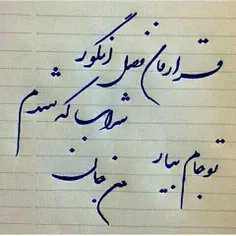 قرارمان فصل انگور
شراب که شدم
تو جام بیار
من جان